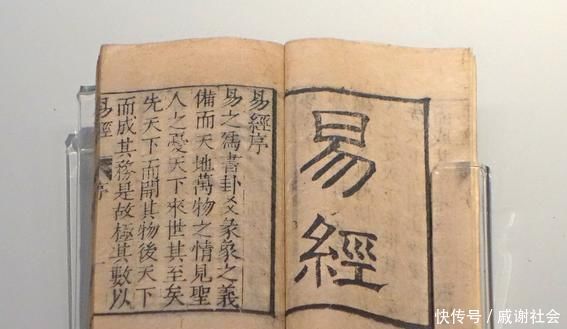 易經
易經序
易之爲書卦爻彖象之義
備而天地萬物之情見聖
人之憂天下來世其至矣
先天下而開其物後天下
而成其務是故極其數以
易經 序
快传号/感谢社会